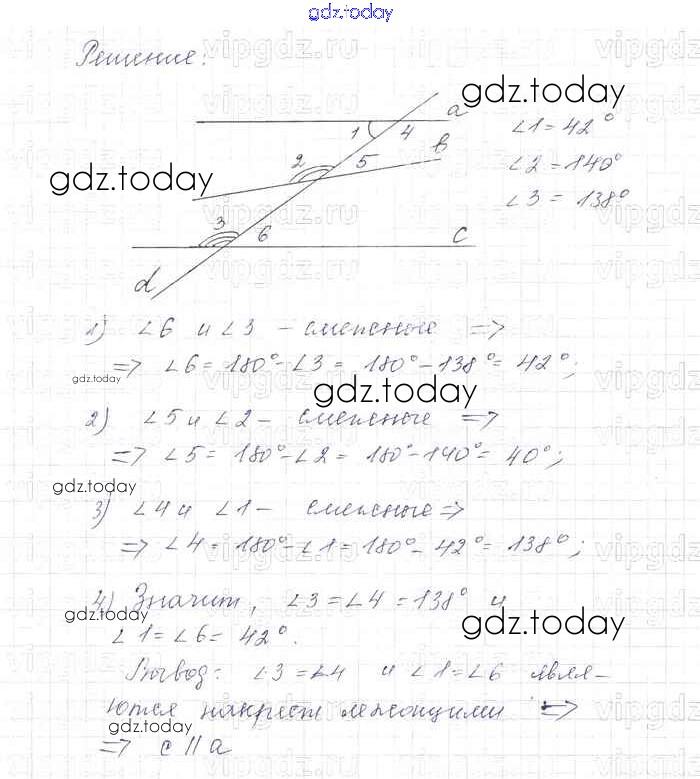 gdz.today
Решение:
gdz.today
a
1
4
∠1 = 42°
b
2
5
∠2 = 140°
gdz.today
∠3 = 138°
3
6
c
d
1) ∠6 и ∠3 – смежные =>
=> ∠6 = 180° – ∠3 = 180° – 138° = 42°;
gdz.today
gdz.today
2) ∠5 и ∠2 – смежные =>
=> ∠5 = 180° – ∠2 = 180° – 140° = 40°;
gdz.today
3) ∠4 и ∠1 – смежные =>
=> ∠4 = 180° – ∠1 = 180° – 42° = 138°;
4) Значит, ∠3 = ∠4 = 138° и
gdz.today
gdz.today
∠1 = ∠6 = 42°.
Вывод: ∠3 = ∠4 и ∠1 = ∠6 явля-
ются накрест лежащими =>
gdz.today
=> c || a
vipgdz.ru